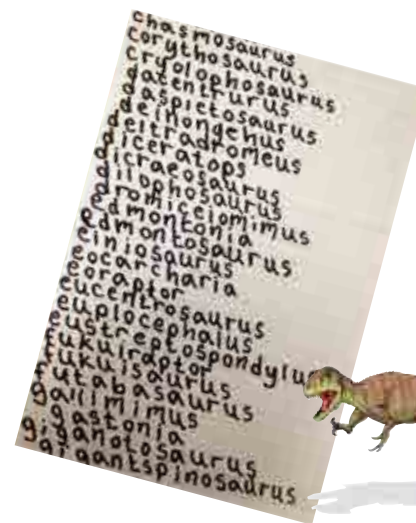 chasmosaurus
corythosaurus
cryolophosaurus
datentrurus
daspletosaurus
deinongehus
deltradromeus
diceratops
dicraeosaurus
dilophosaurus
dromiceiomimus
edmontonia
edmontosaurus
einiosaurus
eocarcharia
eoraptor
eucentrosaurus
euplocephalus
eustreptospondylu
fukuiraptor
fukuisaurus
futabasaurus
gallimimus
gigastonia
giganotosaurus
gigantspinosaurus